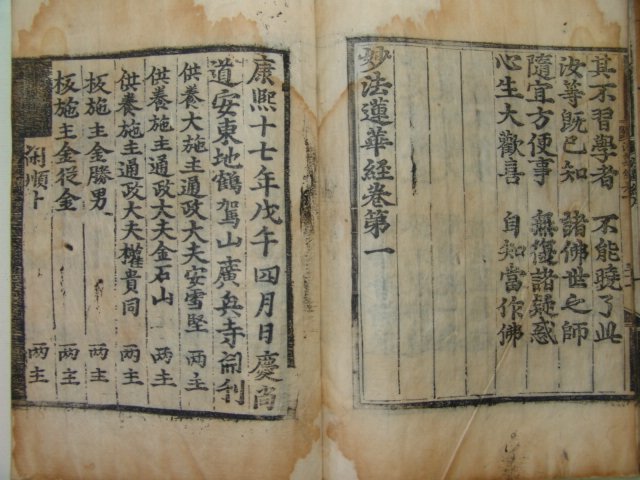 其不習學者 不能曉了此
汝等既已知 諸佛世之師
隨宜方便事 無復諸疑惑
心生大歡喜 自知當作佛
妙法蓮華經卷第一
康熙十七年戊午四月日慶尙
道安東地鶴駕山廣興寺開刊
供養大施主通政大夫安雪堅 两主
供養施主通政大夫金石山 两主
供養施主通政大夫權貴同 两主
板施主金勝男 两主
板施主金從金 两主